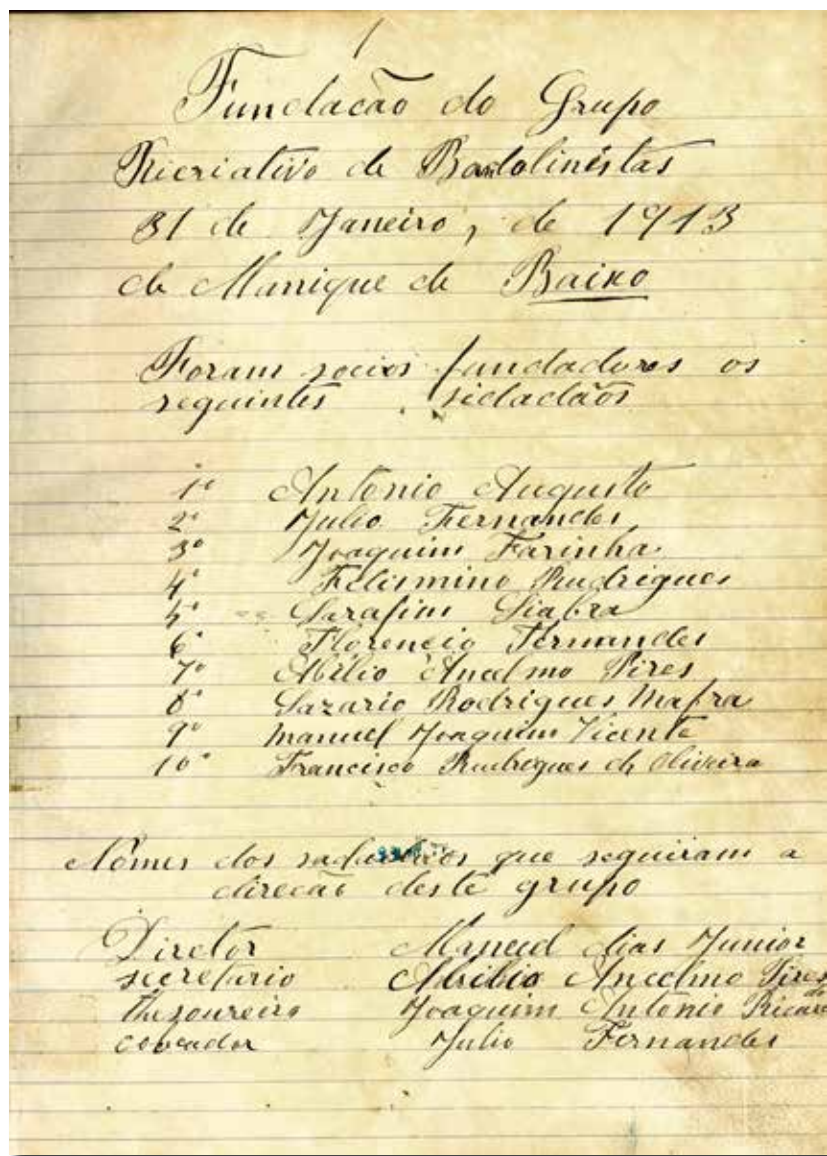 1
Fundacão do Grupo
Ricriativo de Bandolinistas
31 de Janeiro, de 1913
de Manique de Baixo
Foram socios fundadores os
seguintes sidadãos
1º António Augusto
2º Julio Fernandes
3º Joaquim Farinha
4º Felismino Rudrigues
5º Sarafim Siabra
6º Florencio Fernandes
7º Abilio Ancelmo Pires
8º Lazario Rodrigues Mafra
9º Manuel Joaquim Vicente
10º Francisco Rudrogues de Oliveira
Nómes dos que seguiram a
direcão deste grupo
Diretor Manuel dias Junior
secretario Abilio Ancelmo Pires
thesoureiro Joaquim Antonio Ricardo
cobrador Julio Fernandes